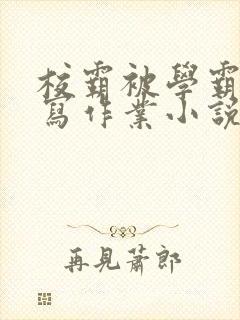 校霸被學霸
寫作業小說
再見蕭郎